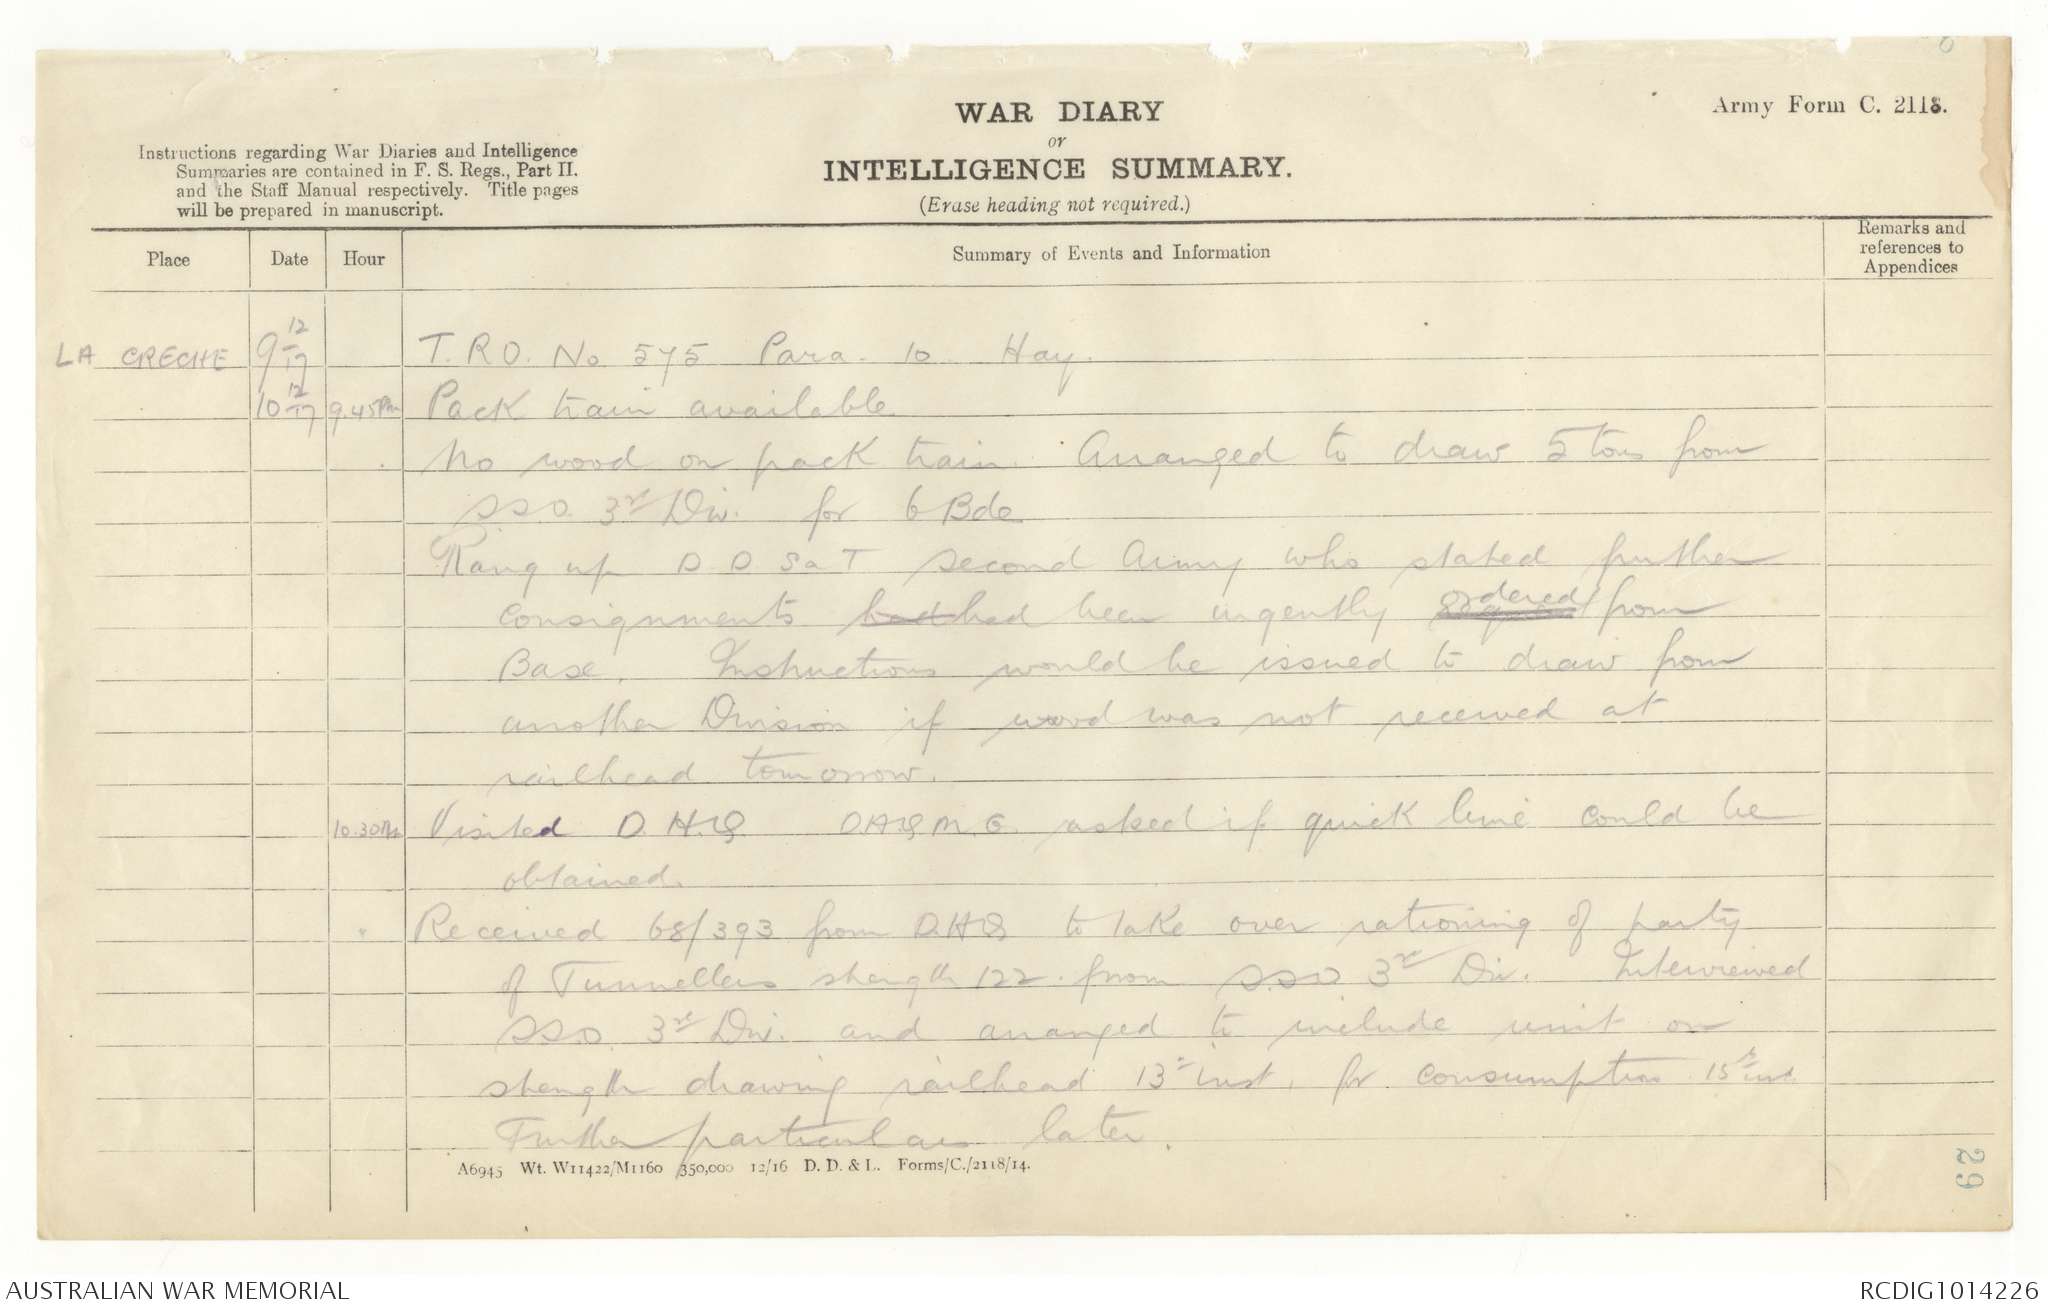 WAR DIARY
or
INTELLIGENCE SUMMARY.
(Erase heading not required.)
Army Form C. 2118.
Instructions regarding War Diaries and Intelligence
Summaries are contained in F. S. Regs., Part II.
and the Staff Manual respectively. Title pages
will be prepared in manuscript.
Place Date Hour Summary of Events and Information Remarks and references to Appendices
LA CRECHE 9 12/17 T.R.O. No 575 Para. 10 Hay.
10 12/17 9.45 Pack train available.
No wood on pack train. Arranged to draw 5 tons from
S.S.O. 3rd Div. for 6 Bde
Rang up D.D.S a T Second Army who stated further
consignments had been urgently ordered from
Base. Instructions would be issued to draw from
another Division if wood was not received at
railhead tomorrow.
10.30 Visited D.H.Q. D.A.Q.M.G. asked if quick lime could be
obtained.
" Received 68/393 from D.H.Q to take over rationing of party
of Tunnellers strength 122 from S.S.O 3rd Div. Interviewed
S.S.O. 3rd Div. and arranged to include unit on
strength drawing railhead 13th inst, for consumption 15th inst.
Further particulars later.
A6945 Wt. W11422/M1160 350,000 12/16 D. D. & L. Forms/C./2118/14.
29
AUSTRALIAN WAR MEMORIAL
RCDIG1014226